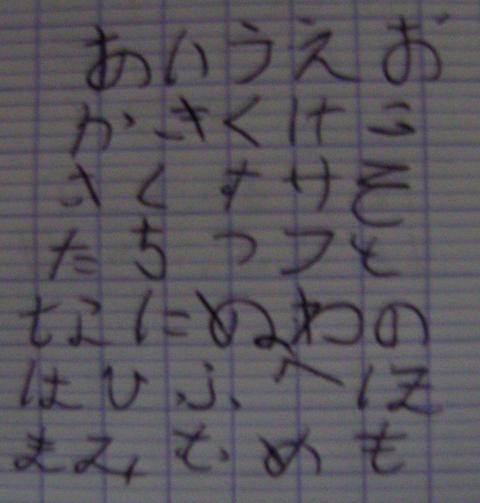 あいうえお
かきくけこ
さくすけそ
たちつフと
なにぬわの
はひふへほ
まみむめも